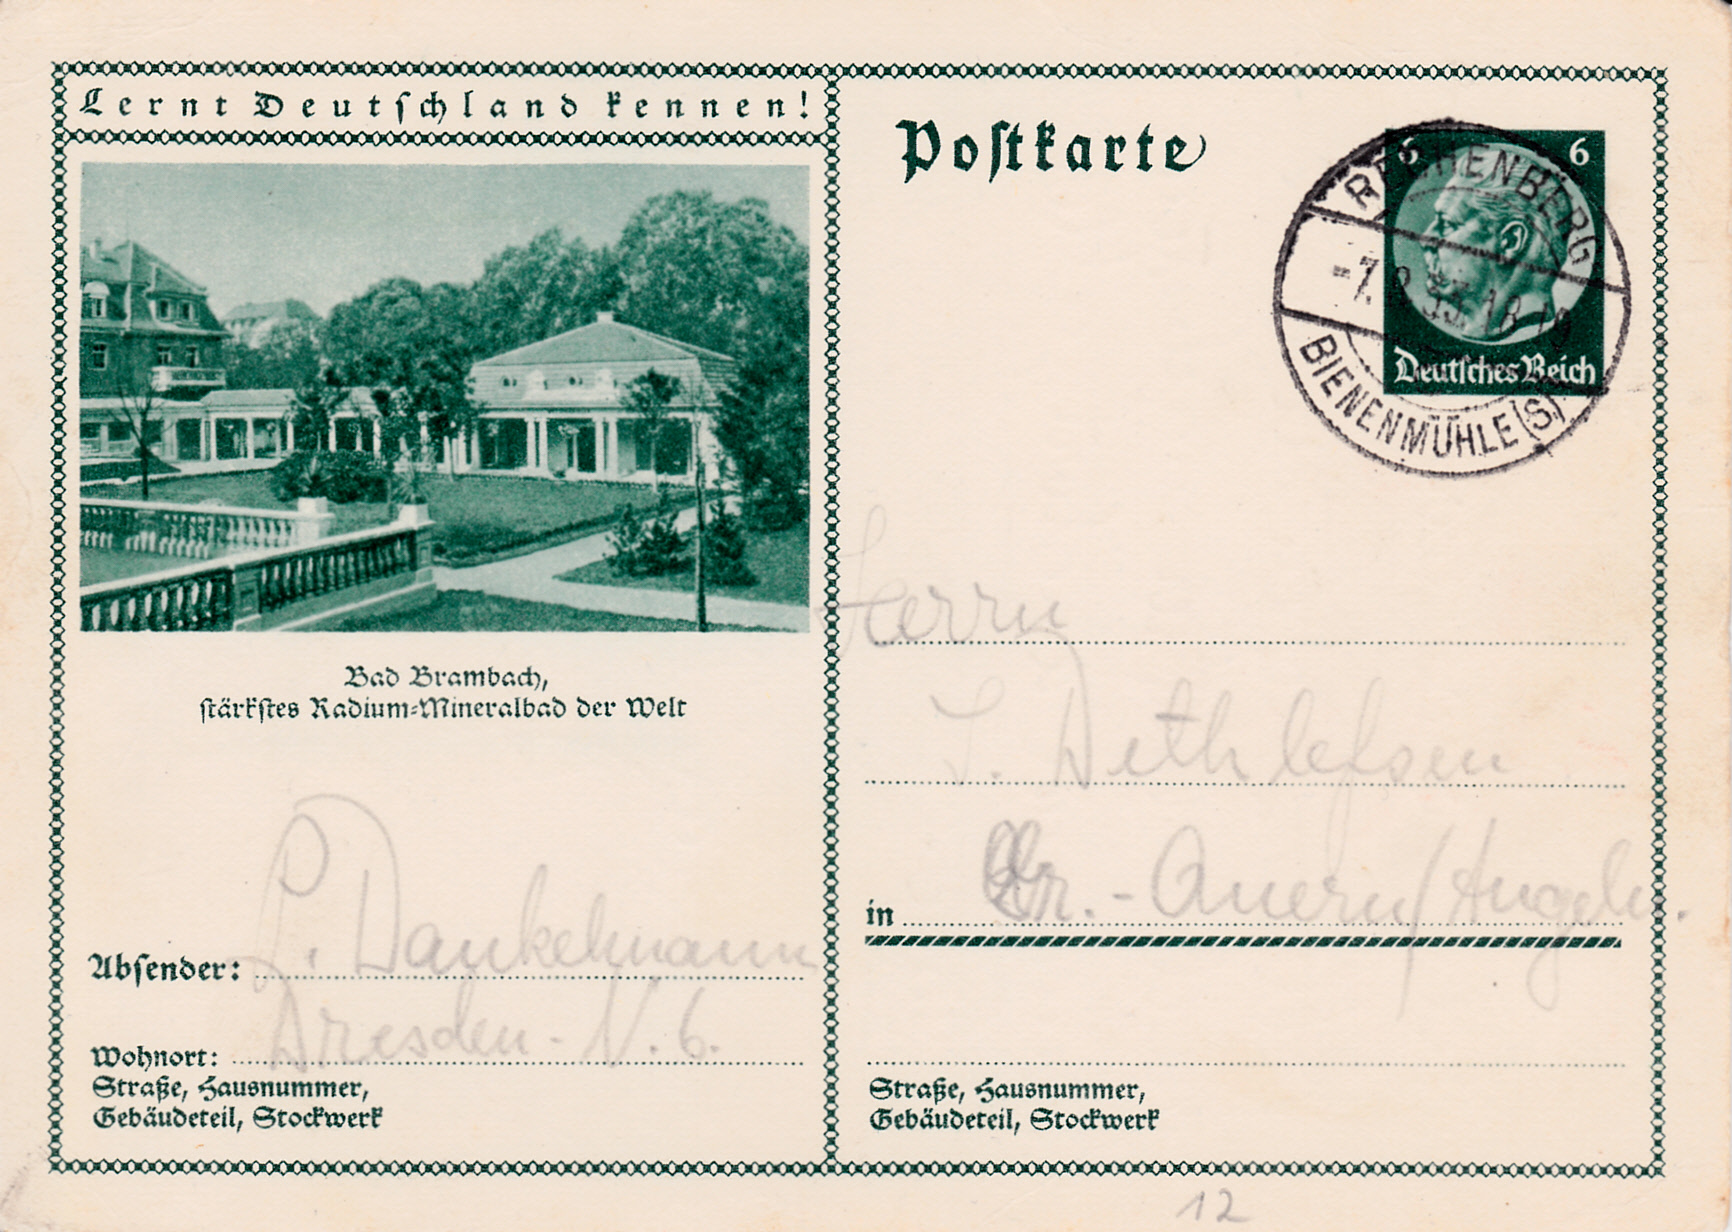 Lernt Deutschland kennen!
Bad Brambach,
stärkstes Radium-Mineralbad der Welt
P. Dankelmann
Absender:
Dresden-N. 6.
Wohnort:
Straße, Hausnummer,
Gebäudeteil, Stockwerk
Postkarte
6 6
Deutsches Reich
BIENENMÜHLE (S)
Herrn
Dethlefsen
in Gr.-Quern/Angeln.
Straße, Hausnummer,
Gebäudeteil, Stockwerk
12